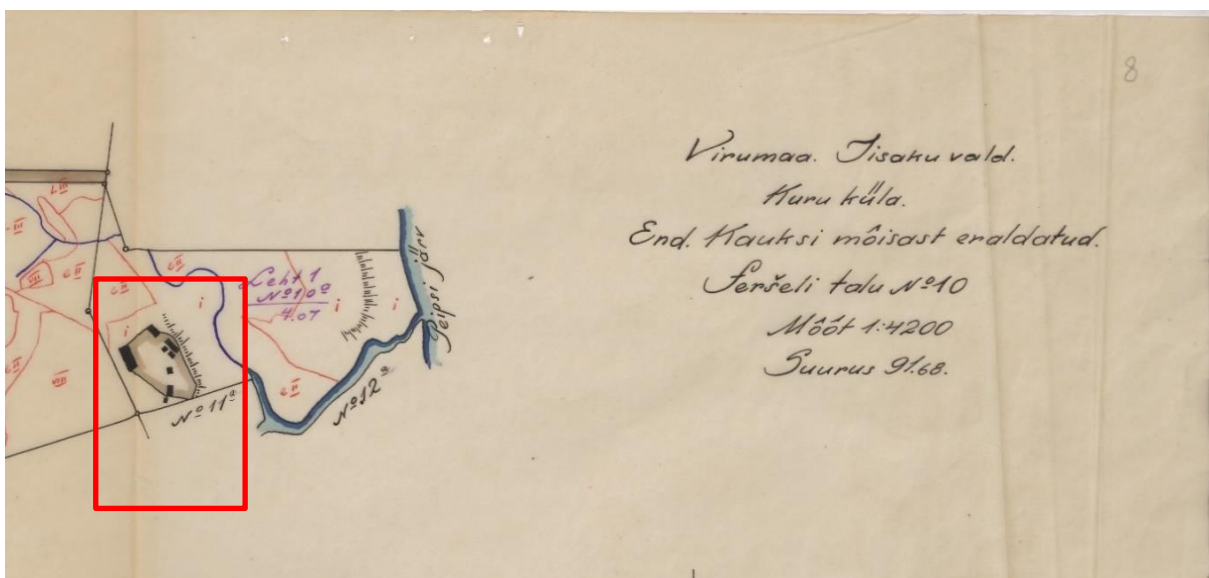 8
Virumaa. Iisaku vald.
Kuru küla.
End. Kauksi mõisast eraldatud.
Feršeli talu №10
Mõõt 1:4200
Suurus 91.68.
Leht 1
№10ª
4.07
i
i
i
i
Peipsi järv
№11ª
№12ª